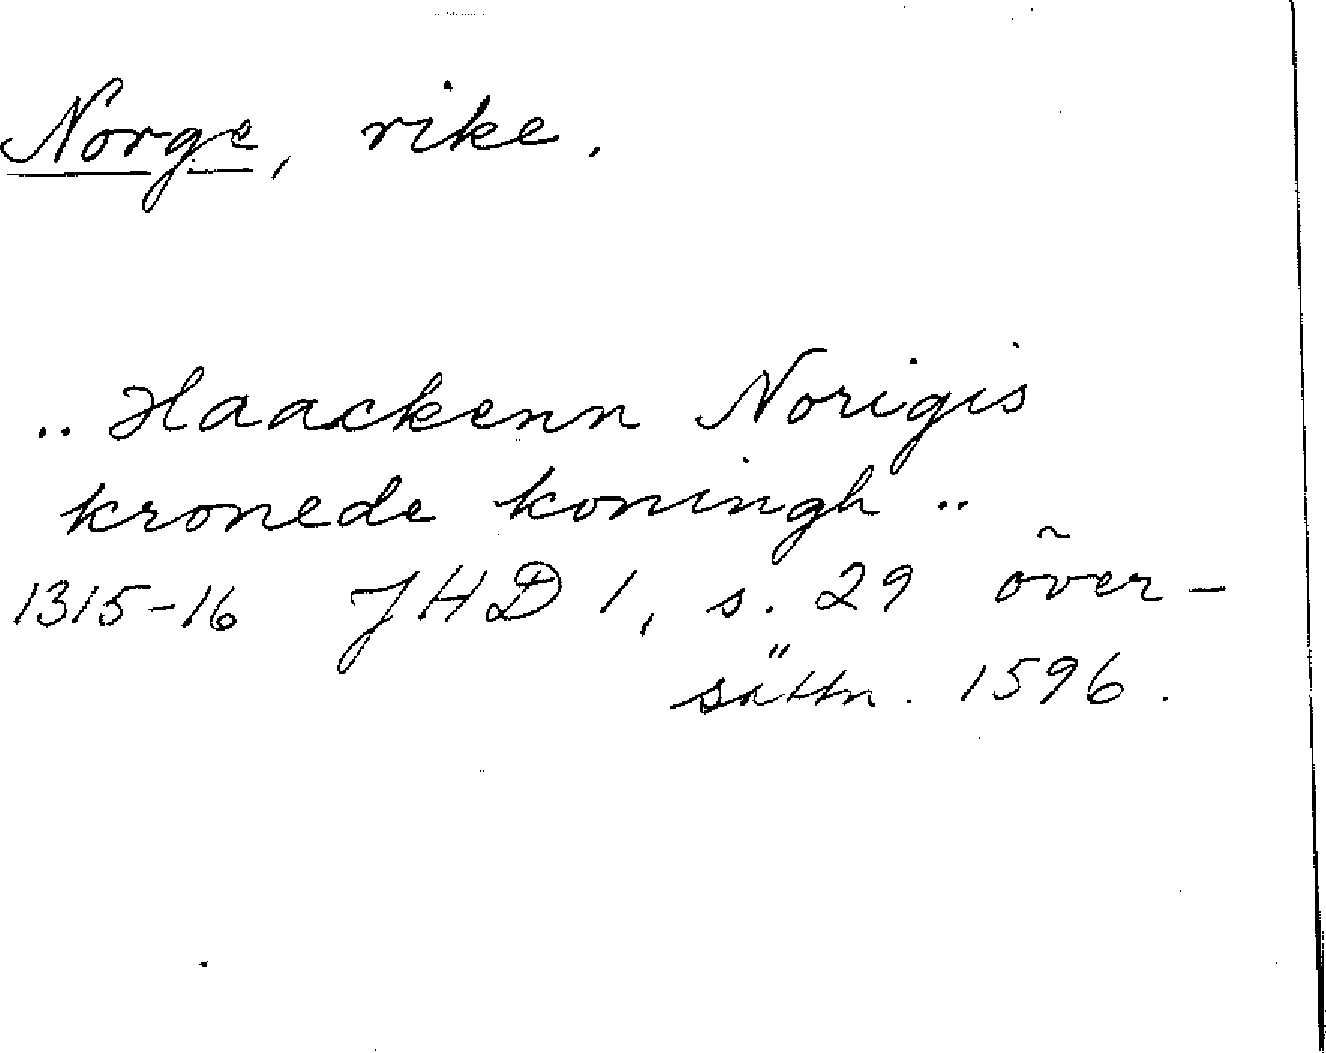 Norge, rike.
.. Haackenn Norigis
kronede koningh ..
1315-16 JHD 1, s. 29 över-
sättn. 1596.